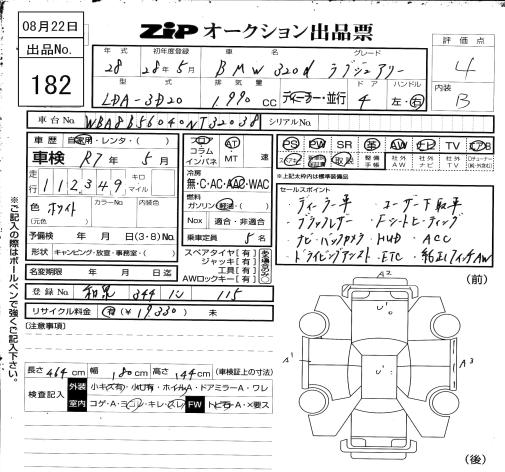 08月22日
ZIP オークション出品票
出品No.
182
評価点
4
内装
B
年式 初年度登録 車名 グレード
28 28年5月 BMW 320d ラグジュアリー
型式 排気量 ドア ハンドル
LDA-3D20 1,990 CC ディーラー・並行 4 左・右
車台No. WBA8B56040NT32038 シリアルNo.
車歴 自家用・レンタ・( )
車検 R7年5月
走行 112,349 キロ マイル
色 ホワイト カラーNo. 内装色
(元色)
予備検 年 月(3・8)No.
形状 キャンピング・放宣・事務室( )
名変期限 年 月 日迄
シフト
フロア コラム インパネ AT MT 速
冷房
無・C・AC・AAC・WAC
燃料
ガソリン・軽油・( )
Nox 適合・非適合
乗車定員 5名
スペアタイヤ[有]
ジャッキ[有]
工具[有]
AWロックキー[有]
PS PW SR 革 AW ナビ TV
エアB 記録簿 取説 整備手帳 社外AW 社外ナビ 社外TV
※上記太枠内は標準装備
セールスポイント
・ディーラー車 ・ユーザー下取車
・ブラックレザー ・Fシートヒーティング
・ナビ・バックカメラ ・HUD ・ACC
・ドライビングアシスト ・ETC ・純正17インチAW
登録No.
344 115
リサイクル料金 有(¥19,330) 未
[注意事項]
長さ464cm 幅180cm 高さ144cm (車検証上の寸法)
検査記入 外装 小キズ有・小凹有・ホイルA・ドアミラーA・ワレ
室内 コゲ・A・ヨゴレ・キレ・スレ FW トビ石・A・×要ス
※ご記入の際はボールペンで強くご記入下さい。
(前)
A2
U'
A'
A3
U'
(後)